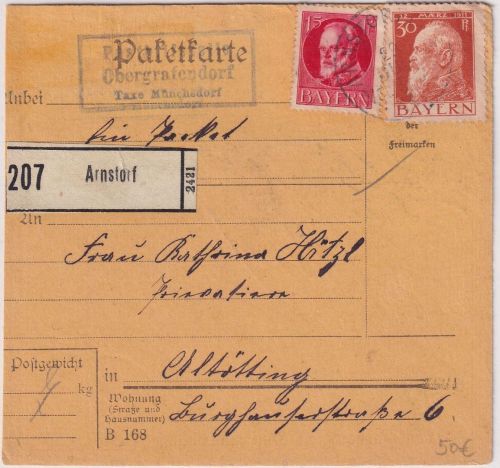 Paketkarte
Obergrafendorf
Taxe Münchsdorf
15 Pf
BAYERN
12. MÄRZ 1911
30 Pf
BAYERN
Unbei
ein Packet
der
Freimarken
207 Arnstorf 2421
An
Frau Kathrina Hitzl
Privatiere
Postgewicht
kg
in Altötting
Wohnung
(Straße und
Hausnummer)
Burghauserstraße 6.
B 168
50€